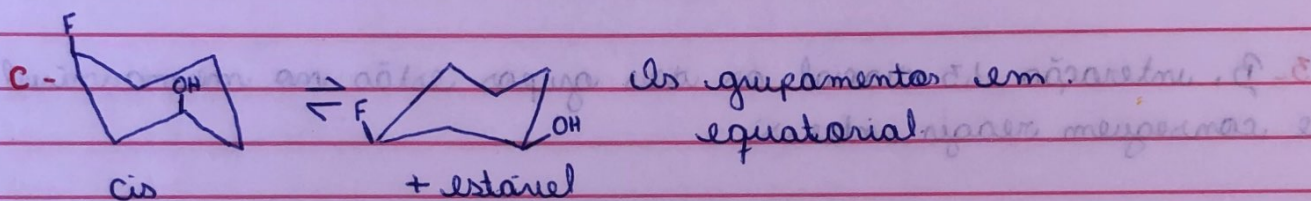 F
C - OH ⇌ F OH Os grupamentos em.
equatorial
cis + estável